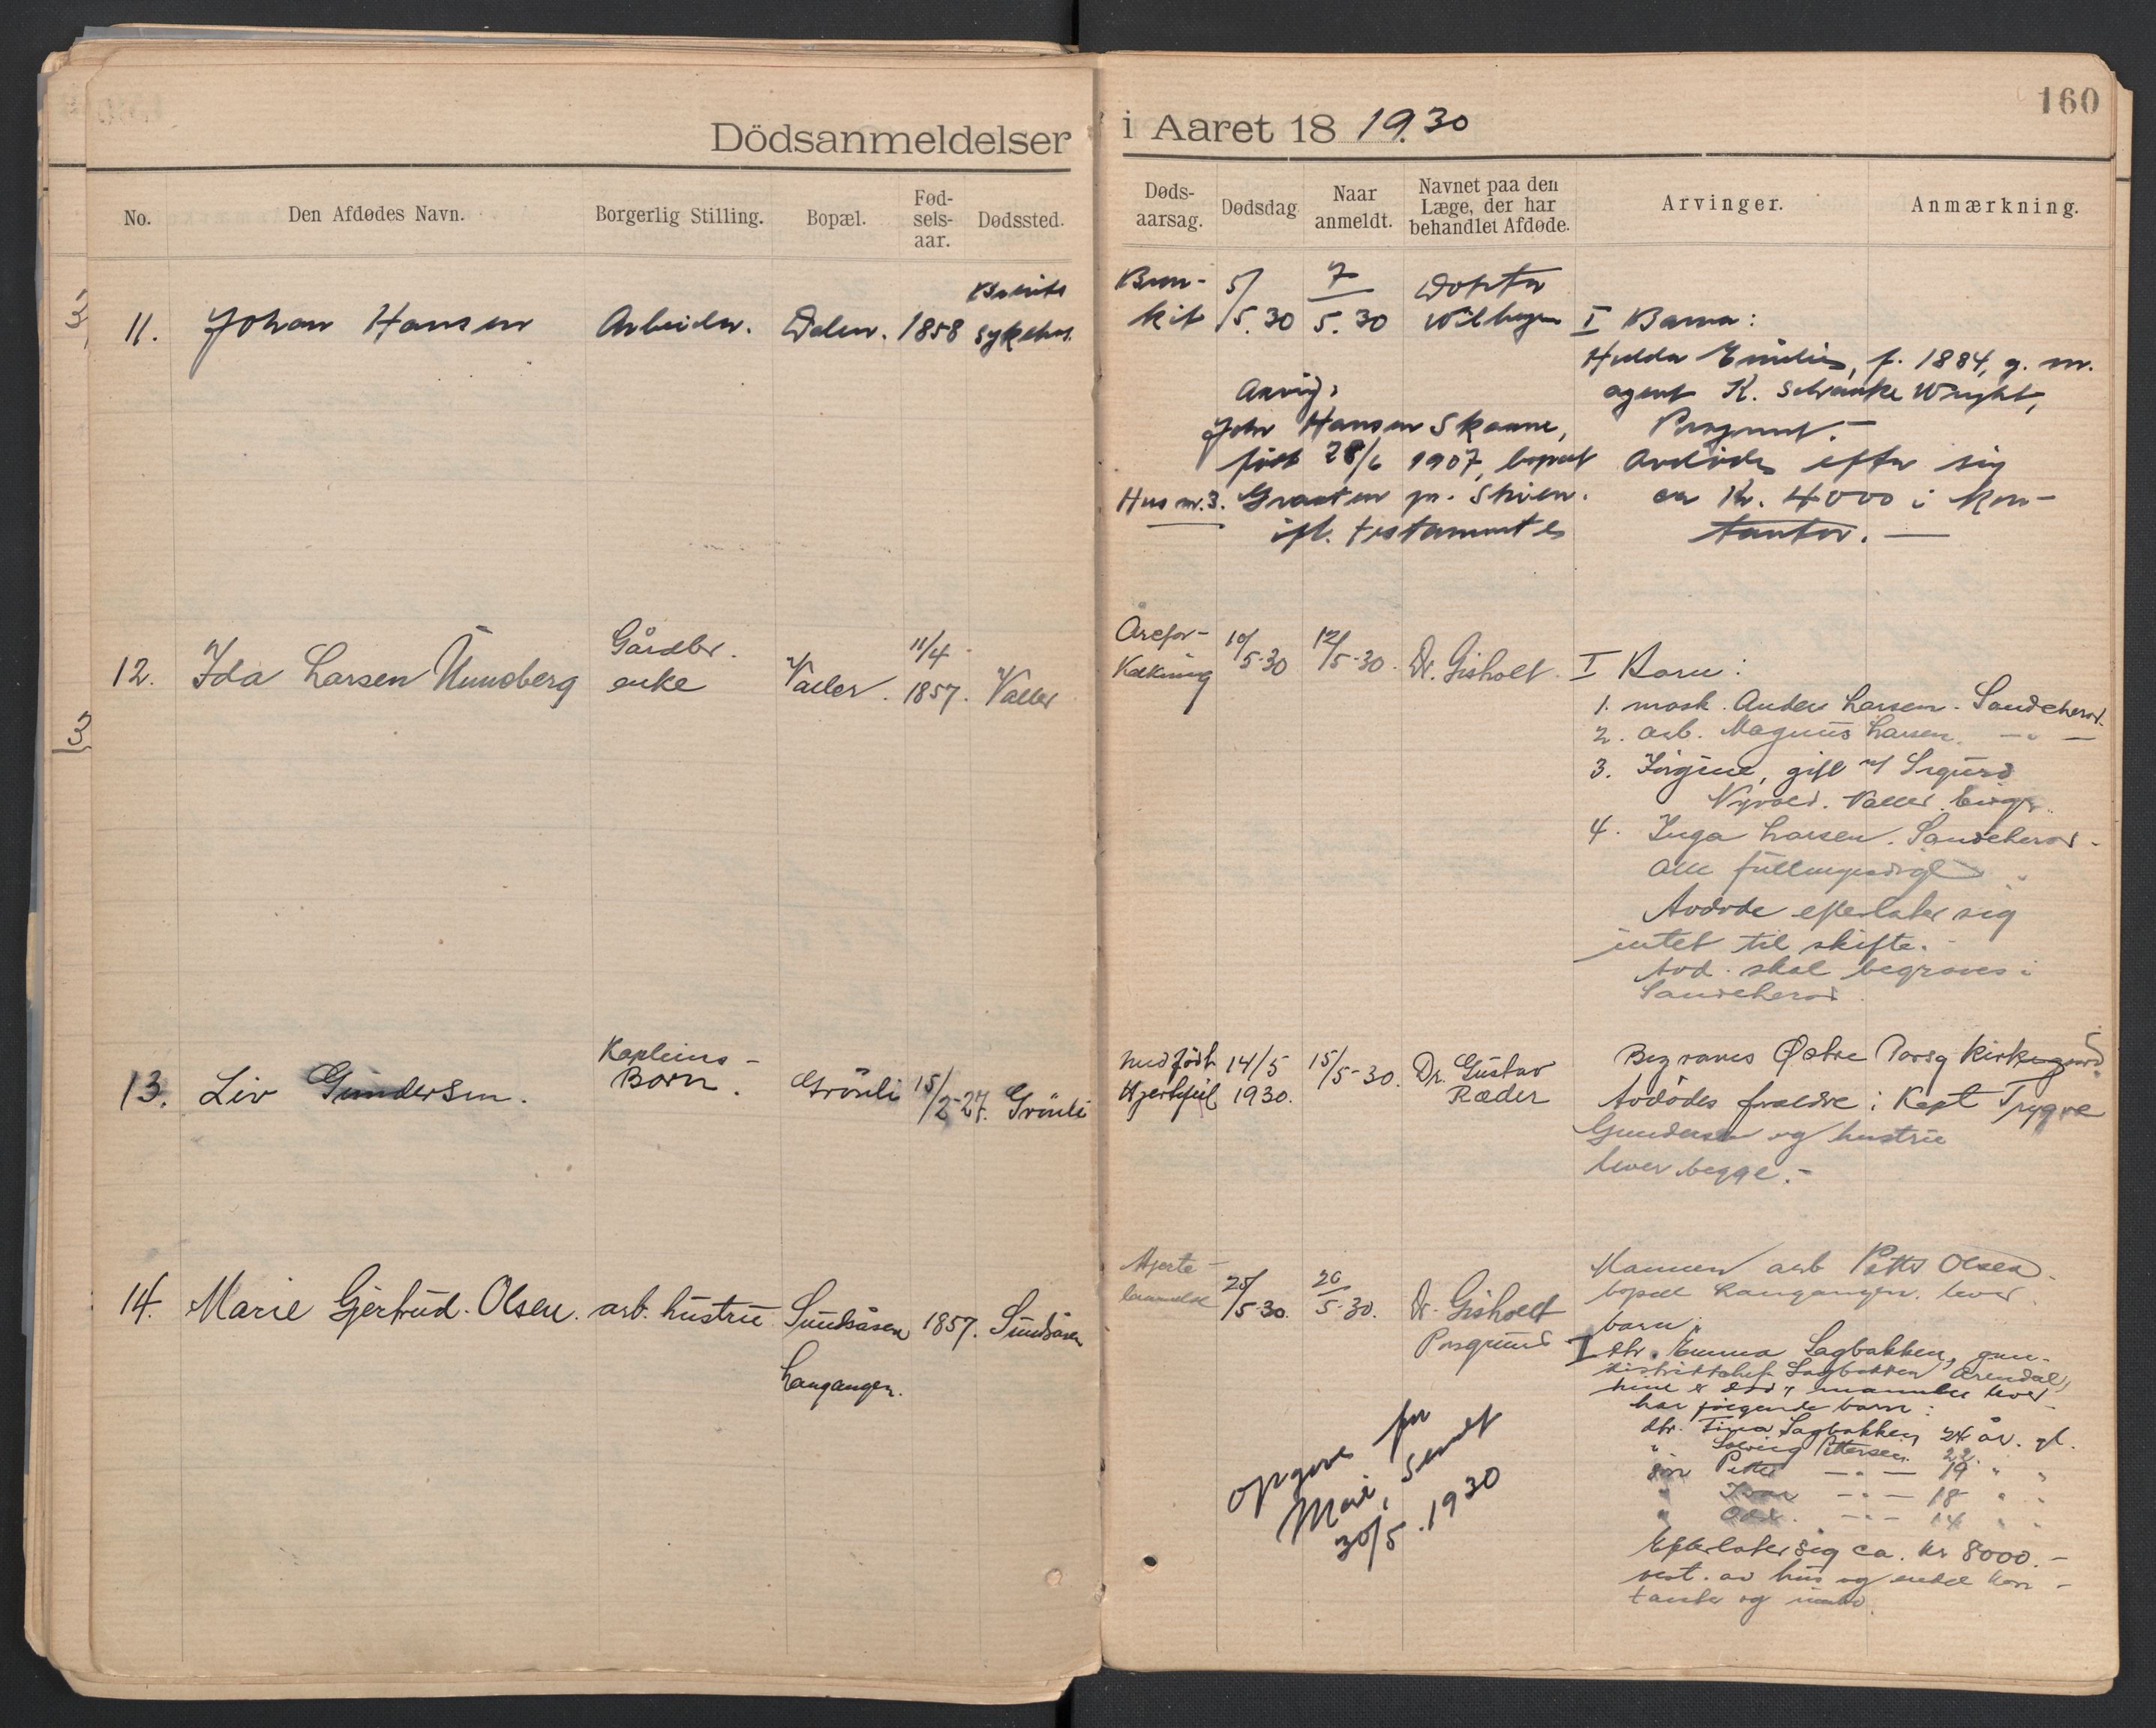 160
Dödsanmeldelser i Aaret 18 1930
No. Den Afdødes Navn. Borgerlig Stilling. Bopæl. Fød-sels-aar. Dødssted. Døds-aarsag. Dødsdag Naar anmeldt. Navnet paa den Læge, der har behandlet Afdøde. Arvinger. Anmærkning.
11. Johan Hansen Arbeider. Dalen. 1858 sykehus.
Bron-kit 5/5.30 7/5.30 Doktor
I Barn:
Hulda Emilie, f. 1884, g. m.
agent K. Schanke Wright,
Porsgrunn.-
Arving:
John Hansen Skaane,
født 28/6 1907, bopæl
Hus nr. 3. Graaten pr. Skien.
ifl. testamente
Avdøde efter sig
ca Kr. 4000 i kon-
tanter. —
12. Ida Larsen Gårdbr. enke Valler. 11/4 1857. Valler
Årefor-
kalkning 10/5-30 12/5-30. Dr. Gisholt.
I Barn:
1. mask. Anders Larsen. Sandeherad.
2. arb. Magnus Larsen. —"—
3. Jørgine, gift m/ Sigurd
Valler
4. Inga Larsen. Sandeherad.
Alle fullmyndige
Avdøde efterlater sig
intet til skifte.
Avd. skal begraves i
Sandeherad.
13. Liv Gundersen. Kapteins-
Barn. Grönli 15/2-27. Grönli
Medfødt
Hjertefeil 14/5 1930. 15/5-30. Dr. Gustav
Ræder
Begraves Østre Porsg kirkegård.
Avdødes foreldre: Kapt Trygve
Gundersen og hustru
lever begge.-
14. Marie Gjertrud Olsen. arb. hustru Sundsåsen 1857. Sundsåsen
Langangen.
Hjerte-
lammelse 25/5-30. 26/5-30. Dr. Gisholt
Porsgrund
Mannen arb Petter Olsen.
bopæl Langangen. lever.
barn:
I dtr. Emma Sagbakken,
Sagbakken Arendal,
har følgende barn:
dtr. Tina Sagbakken 24 år. gl.
" Solveig Pettersen 22.
søn Petter —"— 19 " "
" —"— 18 " "
" Odd. —"— 14 " "
Efterlater sig ca. kr 8000.-
best. av hus og endel kon-
tanter og innbo.
opgave fra
Mari, sendt
30/5.1930